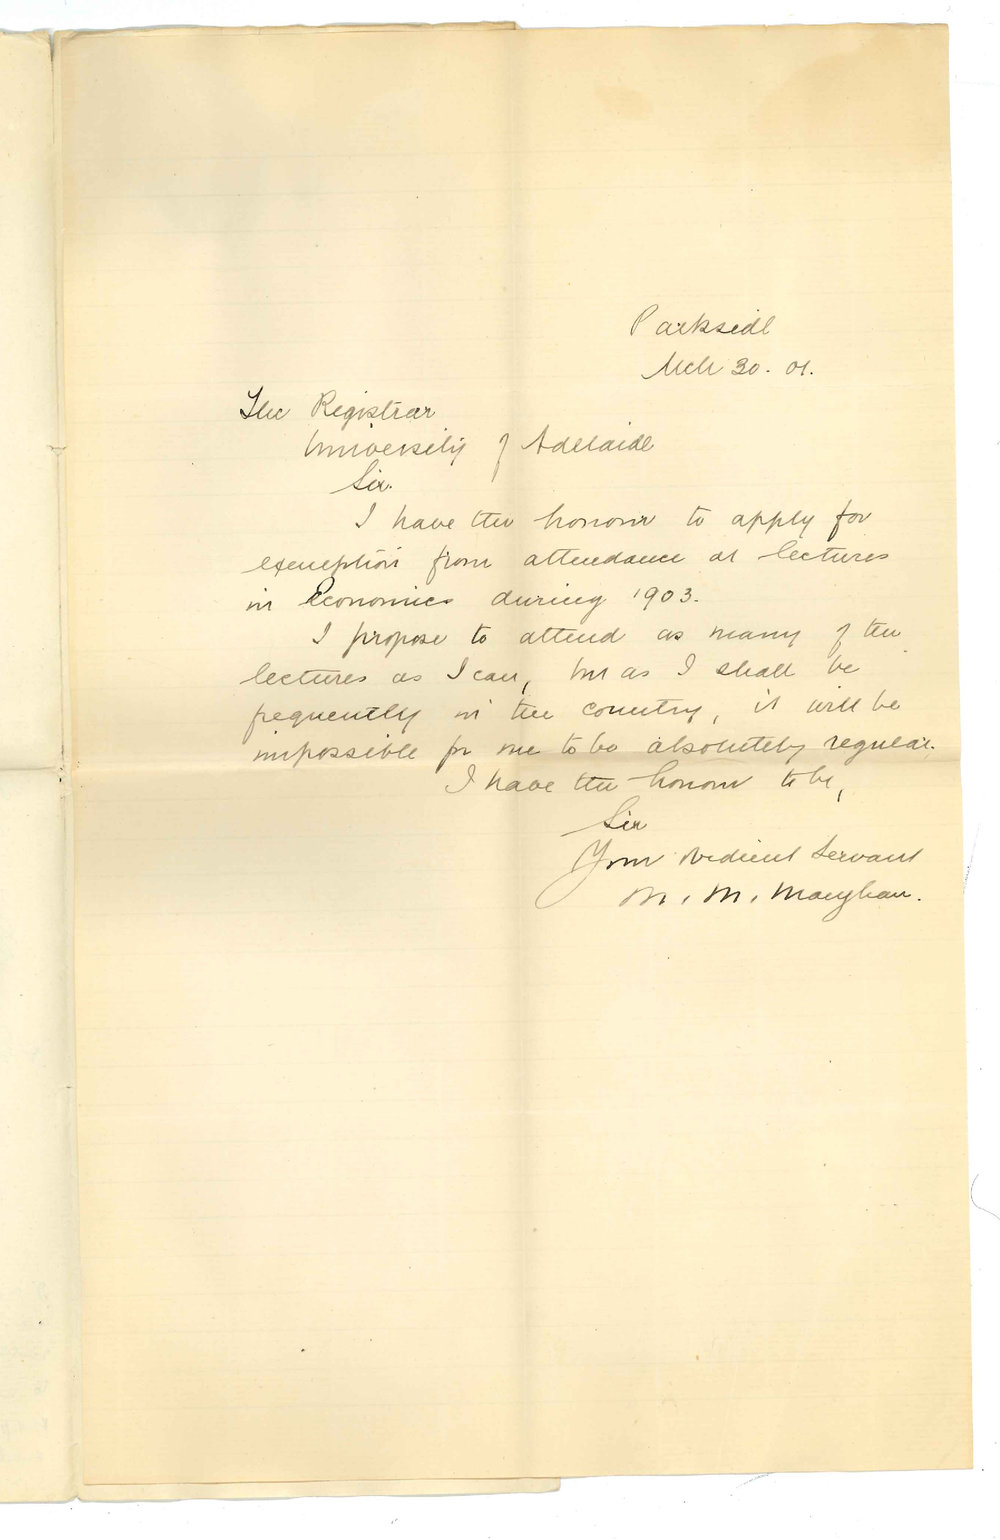 Parkside
Mch 30. 01.
The Registrar
University of Adelaide
Sir.
I have the honour to apply for
exemption from attendance at lectures
in Economics during 1903.
I propose to attend as many of the
lectures as I can, but as I shall be
frequently in the country, it will be
impossible for me to be absolutely regular.
I have the honour to be,
Sir
Your obedient servant
M. M. Maughan.